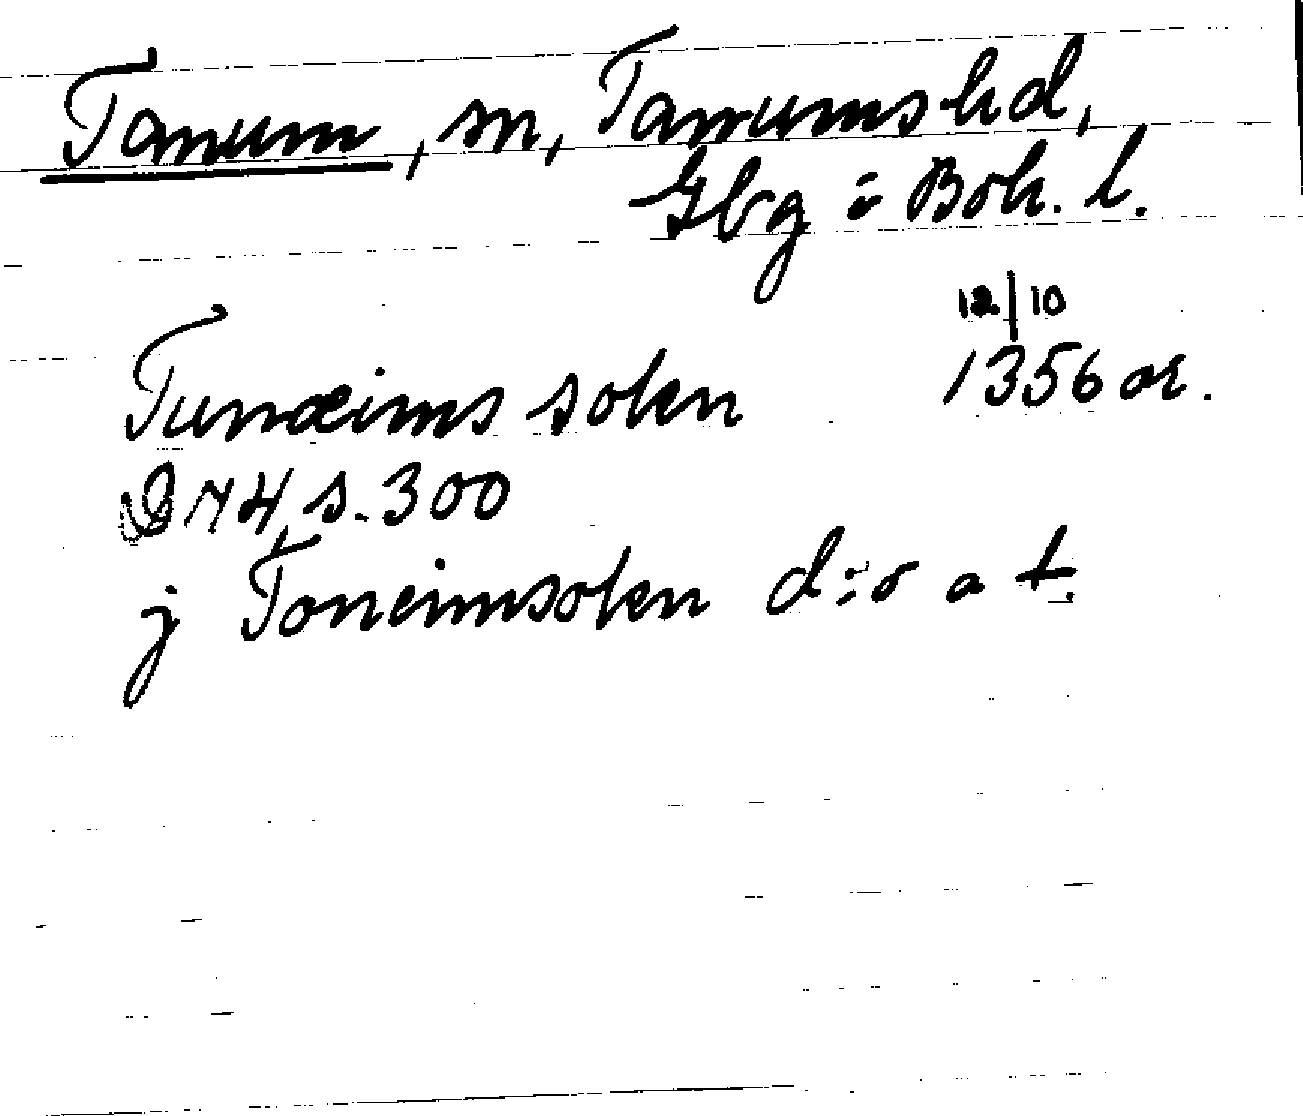 Tanum, sn, Tanums hd,
Gbg i Boh. l.
12/10
Tunæims sokn 1356 or.
s. 300
j Toneimsokn d:o a t.